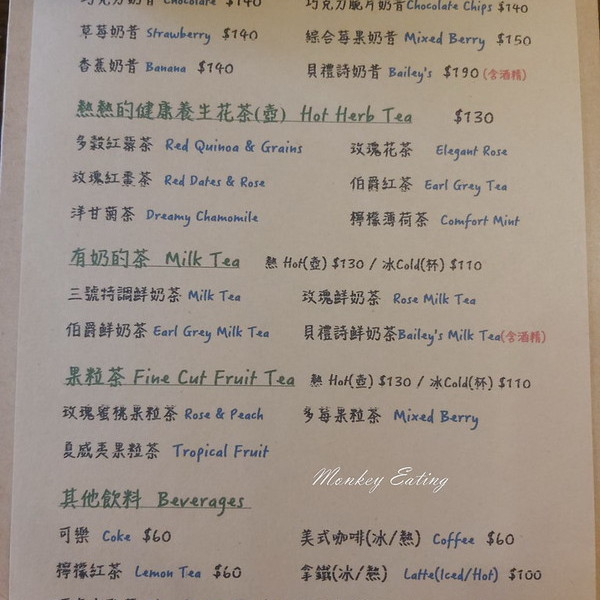 巧克力奶昔 Chocolate $140 巧克力脆片奶昔Chocolate Chips $140
草莓奶昔 Strawberry $140 綜合莓果奶昔 Mixed Berry $150
香蕉奶昔 Banana $140 貝禮詩奶昔 Bailey's $190 (含酒精)
熱熱的健康養生花茶(壺) Hot Herb Tea $130
多穀紅藜茶 Red Quinoa & Grains 玫瑰花茶 Elegant Rose
玫瑰紅棗茶 Red Dates & Rose 伯爵紅茶 Earl Grey Tea
洋甘菊茶 Dreamy Chamomile 檸檬薄荷茶 Comfort Mint
有奶的茶 Milk Tea 熱 Hot(壺) $130 / 冰Cold(杯) $110
三號特調鮮奶茶 Milk Tea 玫瑰鮮奶茶 Rose Milk Tea
伯爵鮮奶茶 Earl Grey Milk Tea 貝禮詩鮮奶茶Bailey's Milk Tea(含酒精)
果粒茶 Fine Cut Fruit Tea 熱 Hot(壺) $130 / 冰Cold(杯) $110
玫瑰蜜桃果粒茶 Rose & Peach 多莓果粒茶 Mixed Berry
夏威夷果粒茶 Tropical Fruit
Monkey Eating
其他飲料 Beverages
可樂 Coke $60 美式咖啡(冰/熱) Coffee $60
檸檬紅茶 Lemon Tea $60 拿鐵(冰/熱) Latte(Iced/Hot) $100